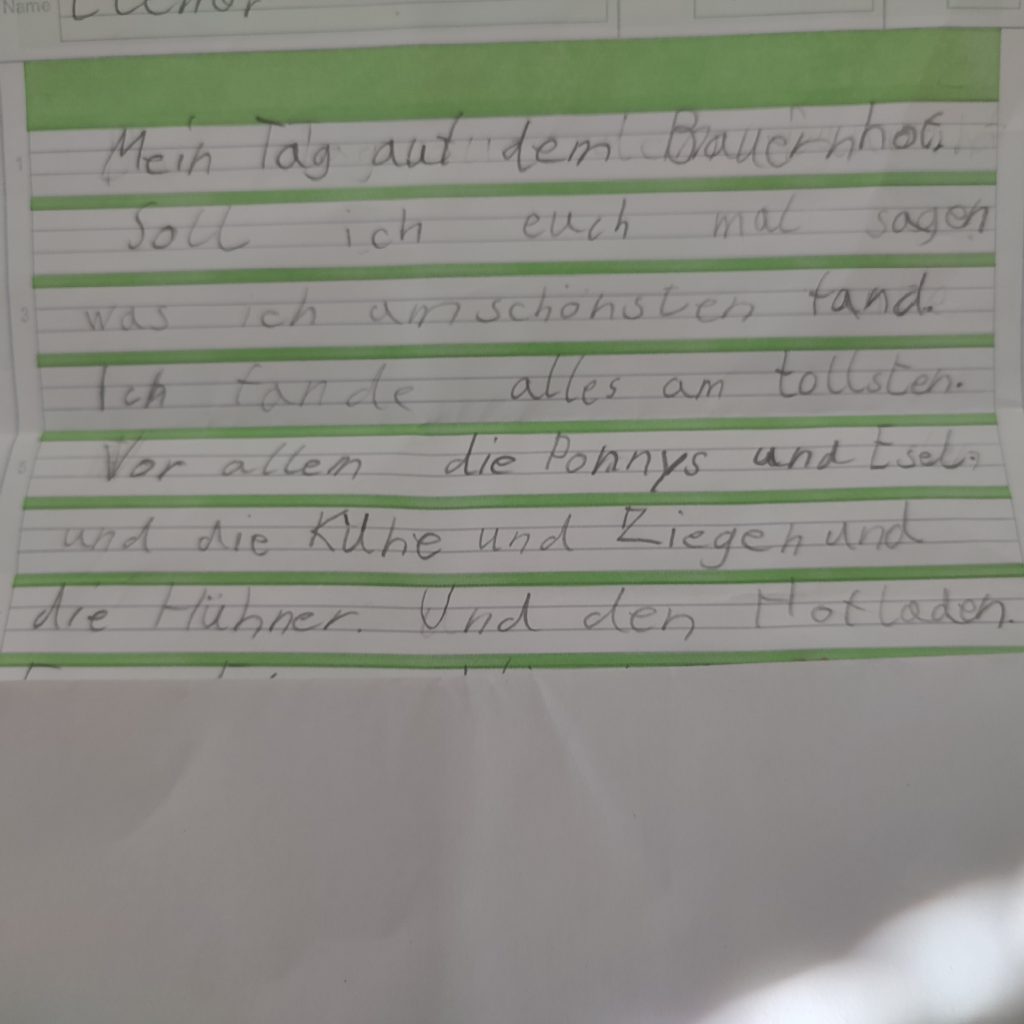 Name
1
Mein Tag auf dem Bauernhof.
Soll ich euch mal sagen
3
was ich am schönsten fand.
Ich fande alles am tollsten.
5
Vor allem die Ponnys und Esel,
und die Kühe und Ziegen und
die Hühner. Und den Hofladen.